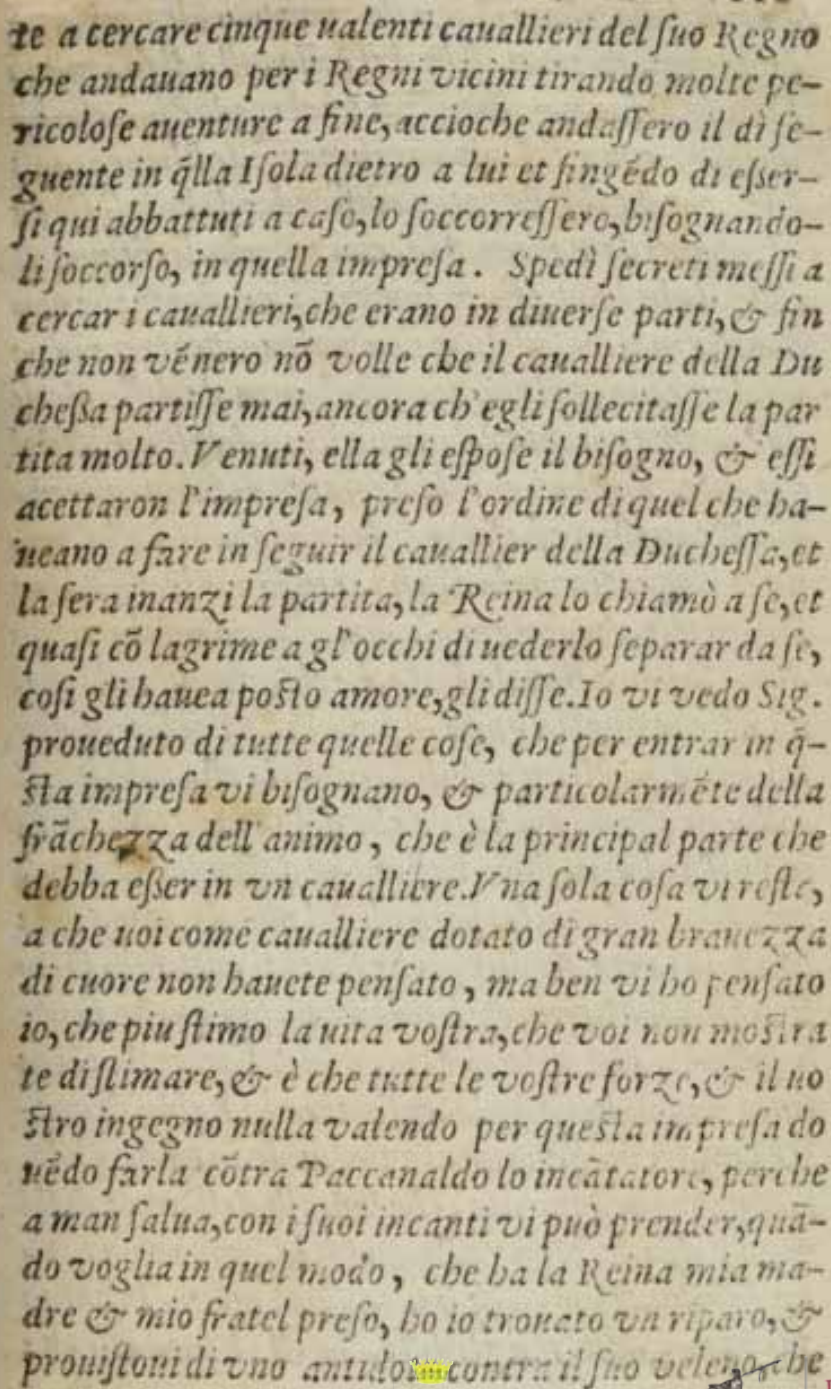 te a cercare cinque ualenti cauallieri del ſuo Regno
che andauano per i Regni vicini tirando molte pe-
ricoloſe auenture a fine, accioche andaſſero il dì ſe-
guente in q̃lla Iſola dietro a lui et fingẽdo di eſſer-
ſi qui abbattuti a caſo, lo ſoccorreſſero, biſognando-
li ſoccorſo, in quella impreſa. Spedì ſecreti meſſi a
cercar i cauallieri, che erano in diuerſe parti, & fin
che non vẽnero nõ volle che il caualliere della Du
cheſſa partiſſe mai, ancora ch'egli ſollecitaſſe la par
tita molto. Venuti, ella gli eſpoſe il biſogno, & eſſi
acettaron l'impreſa, preſo l'ordine di quel che ha-
ueano a fare in ſeguir il cauallier della Ducheſſa, et
la ſera inanzi la partita, la Reina lo chiamò a ſe, et
quaſi cõ lagrime a gl'occhi di uederlo ſeparar da ſe,
coſi gli hauea poſto amore, gli diſſe. Io vi vedo Sig.
proueduto di tutte quelle coſe, che per entrar in q̃-
ſta impreſa vi biſognano, & particolarmẽte della
frãchezza dell'animo, che è la principal parte che
debba eſſer in vn caualliere. Vna ſola coſa vi reſta,
a che uoi come caualliere dotato di gran brauezza
di cuore non hauete penſato, ma ben vi ho penſato
io, che piu ſtimo la uita voſtra, che voi non moſtra
te di ſtimare, & è che tutte le voſtre forze, & il uo
ſtro ingegno nulla valendo per queſta impreſa do
uẽdo farla cõtra Paccanaldo lo incãtatore, perche
a man ſalua, con i ſuoi incanti vi può prender, quã-
do voglia in quel modo, che ha la Reina mia ma-
dre & mio fratel preſo, ho io trouato vn riparo, &
prouiſtoui di vno contra il ſuo veleno, che